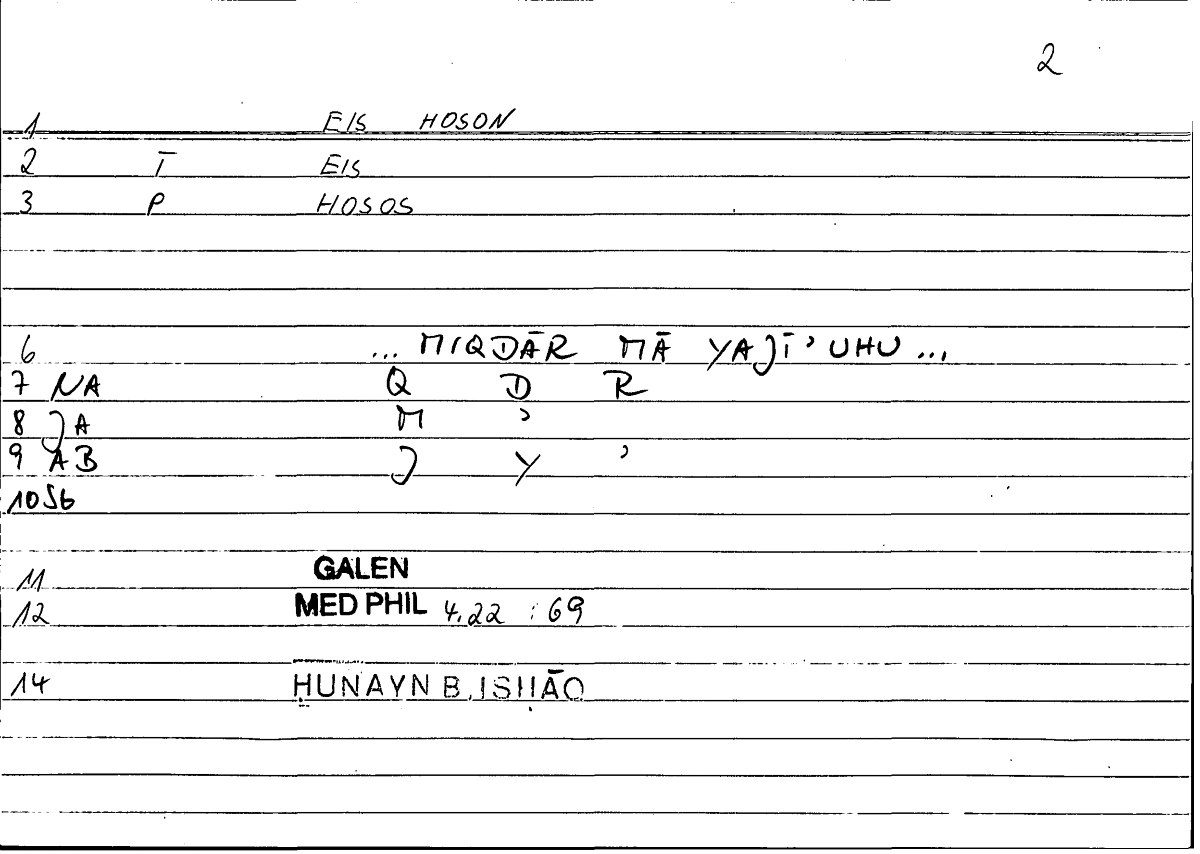 2
1 EIS HOSON
2 Ī EIS
3 P HOSOS
6 ... MIQDĀR MĀ YAJĪʾUHU ...
7 NA Q D R
8 JA M ʾ
9 AB J Y ʾ
10 Sb
11 GALEN
12 MED PHIL 4,22 : 69
14 ḤUNAYN B. ISḤĀQ